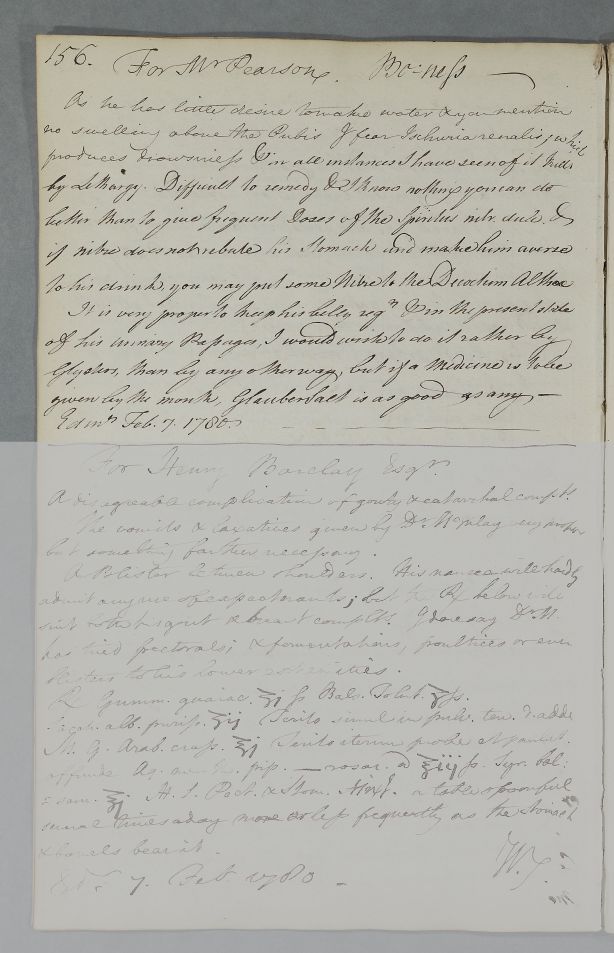 156. For Mr Pearson. Bo:ness
As he has little desire to make water & you mention
no swelling above the Pubis I fear Ischuria renalis; which
produces drowsiness & in all instances I have seen of it kills
by Lethargy. Difficult to remedy & I know nothing you can do
better than to give frequent Doses of the Spiritus nitr. dulc. &
if nitre does not rebute his Stomach and make him averse
to his drink, you may put some Nitre to the Decoctum Altheae
It is very proper to keep his belly reg. & in the present state
of his urinary Passages, I would wish to do it rather by
Glysters, than by any other way, but if a Medicine is to be
given by the mouth, Glauber Salt is as good as any —
Edinr. Feb. 7. 1780.
For Henry Barclay Esqr.
A disagreeable complication of gouty & catarrhal compts.
The vomits & laxatives given by Dr. very proper
but something farther necessary.
A Blister between shoulders. His nausea will hardly
admit any use of expectorants; but the Rx below will
suit both gout & breast compts. I daresay Dr. M.
has tried pectorals; & fomentations, poultices or even
blisters to his lower extremities.
Rx Gumm. guaiac. ʒj ss Bals. Tolut. ʒss.
alb. puriss. ʒij Terito simul in pulv. ten. & adde
M. G. Arab. ʒj Terito iterum probe et paulat.
affunde Aq. menth. pip. — rosar. a ℥iij ss. Syr. bal:
℥j M. S. Pect. & Stom. Mixt. a table spoonful
several times a day more or less frequently as the stomach
& bowels bear it.
Edr. 7. Feb. 1780 —